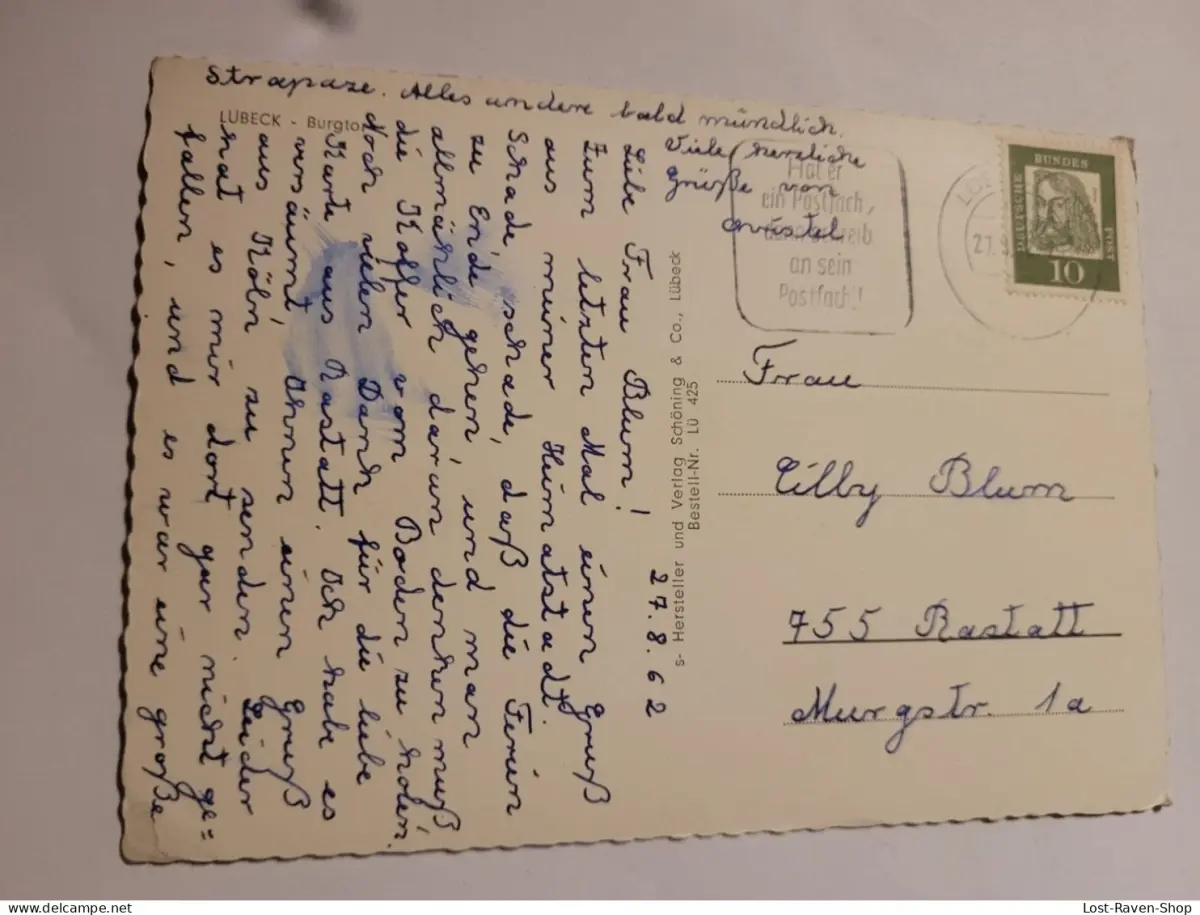 LÜBECK - Burgtor
27.8.62
Liebe Frau Blum!
Zum letzten Mal einen Gruß
aus meiner Heimatstadt.
Schade, schade, daß die Ferien
zu Ende gehen, und man
allmählich daran denken muß
die Koffer vom Boden zu holen.
Noch vielen Dank für die liebe
Karte aus Rastatt. Ich habe es
versäumt, Ihnen einen Gruß
aus Köln zu senden. Leider
hat es mir dort gar nicht ge=
fallen, und es war eine große
Strapaze. Alles andere bald mündlich.
Viele herzliche
Grüße von
s- Hersteller und Verlag Schöning & Co., Lübeck
Bestell-Nr. Lü 425
Hat er
ein Postfach,
dann schreib
an sein
Postfach!
DEUTSCHE BUNDES POST
10
Frau
Cilly Blum
755 Rastatt
Murgstr. 1a
Lost-Raven-Shop
delcampe.net